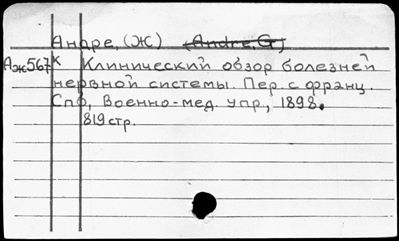 Андре, (Ж) (Andre, G)
Аж567 к Клинический обзор болезней
нервной системы. Пер. с франц.
Спб, Военно-мед. упр., 1898.
819 стр.